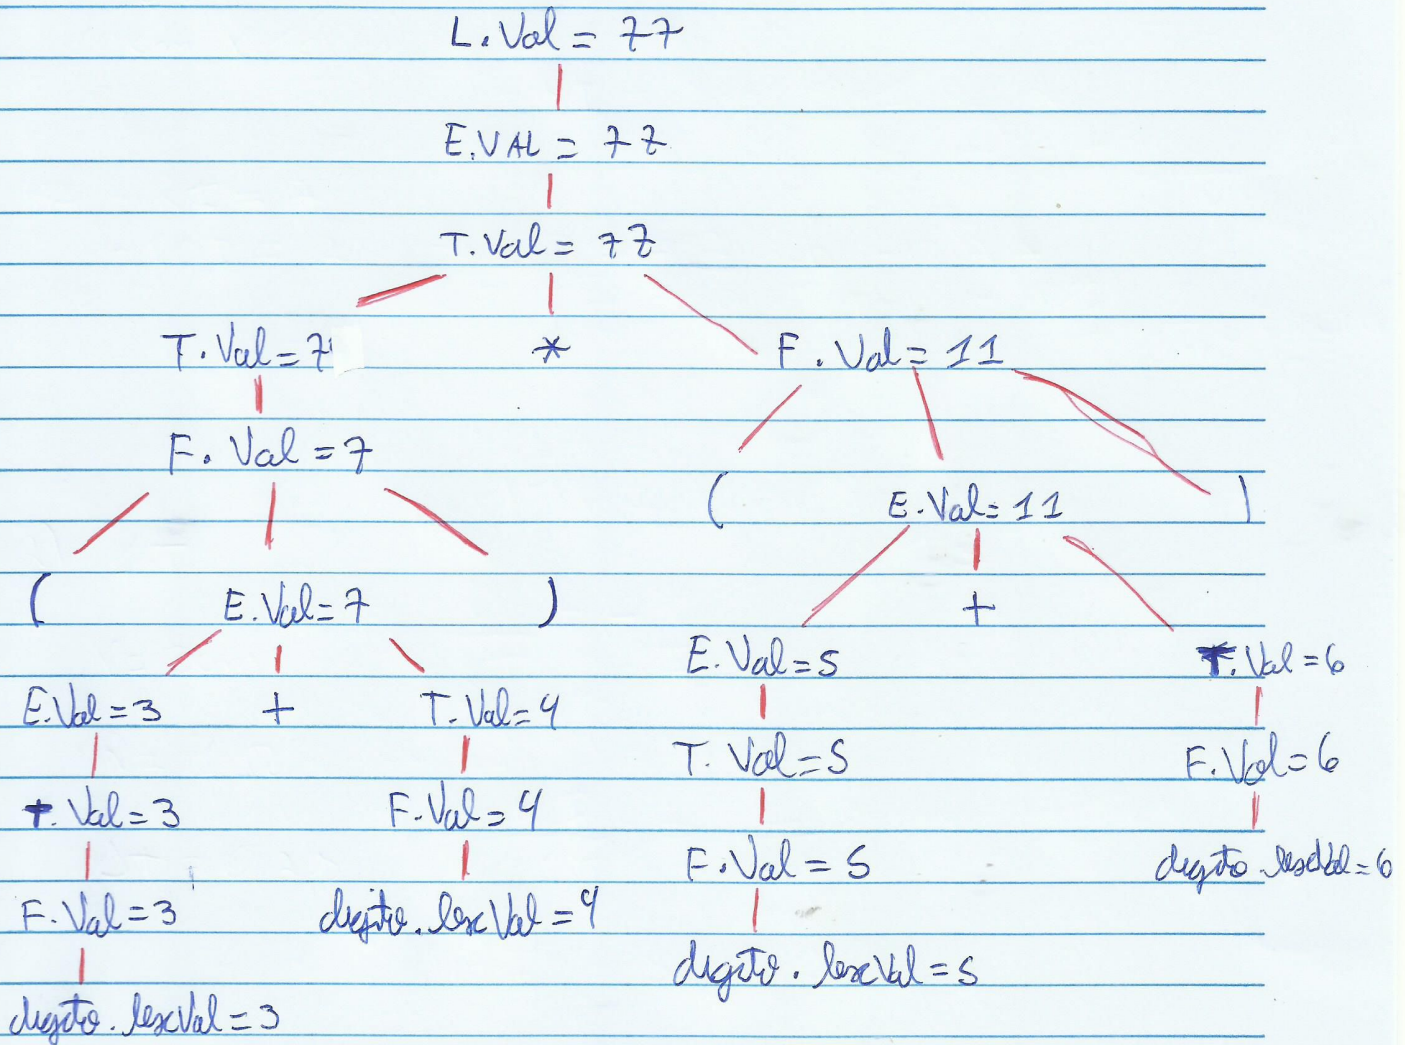 L.Val = 77
E.VAL = 77
T.Val = 77
T.Val = 7 * F.Val = 11
F.Val = 7
( E.Val = 11 )
( E.Val = 7 ) +
E.Val = 5 T.Val = 6
E.Val = 3 + T.Val = 4
T.Val = 5 F.Val = 6
T.Val = 3 F.Val = 4
F.Val = 5 digito.lexVal = 6
F.Val = 3 digito.lexVal = 4
digito.lexVal = 5
digito.lexVal = 3